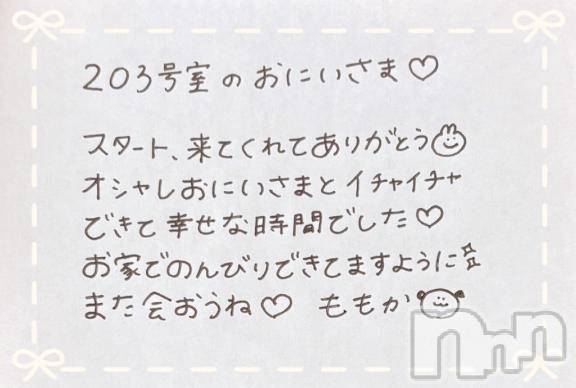 203号室のおにいさま♡
スタート、来てくれてありがとう
オシャレおにいさまとイチャイチャ
できて幸せな時間でした♡
お家でのんびりできてますように
また会おうね♡ ももか
nnn